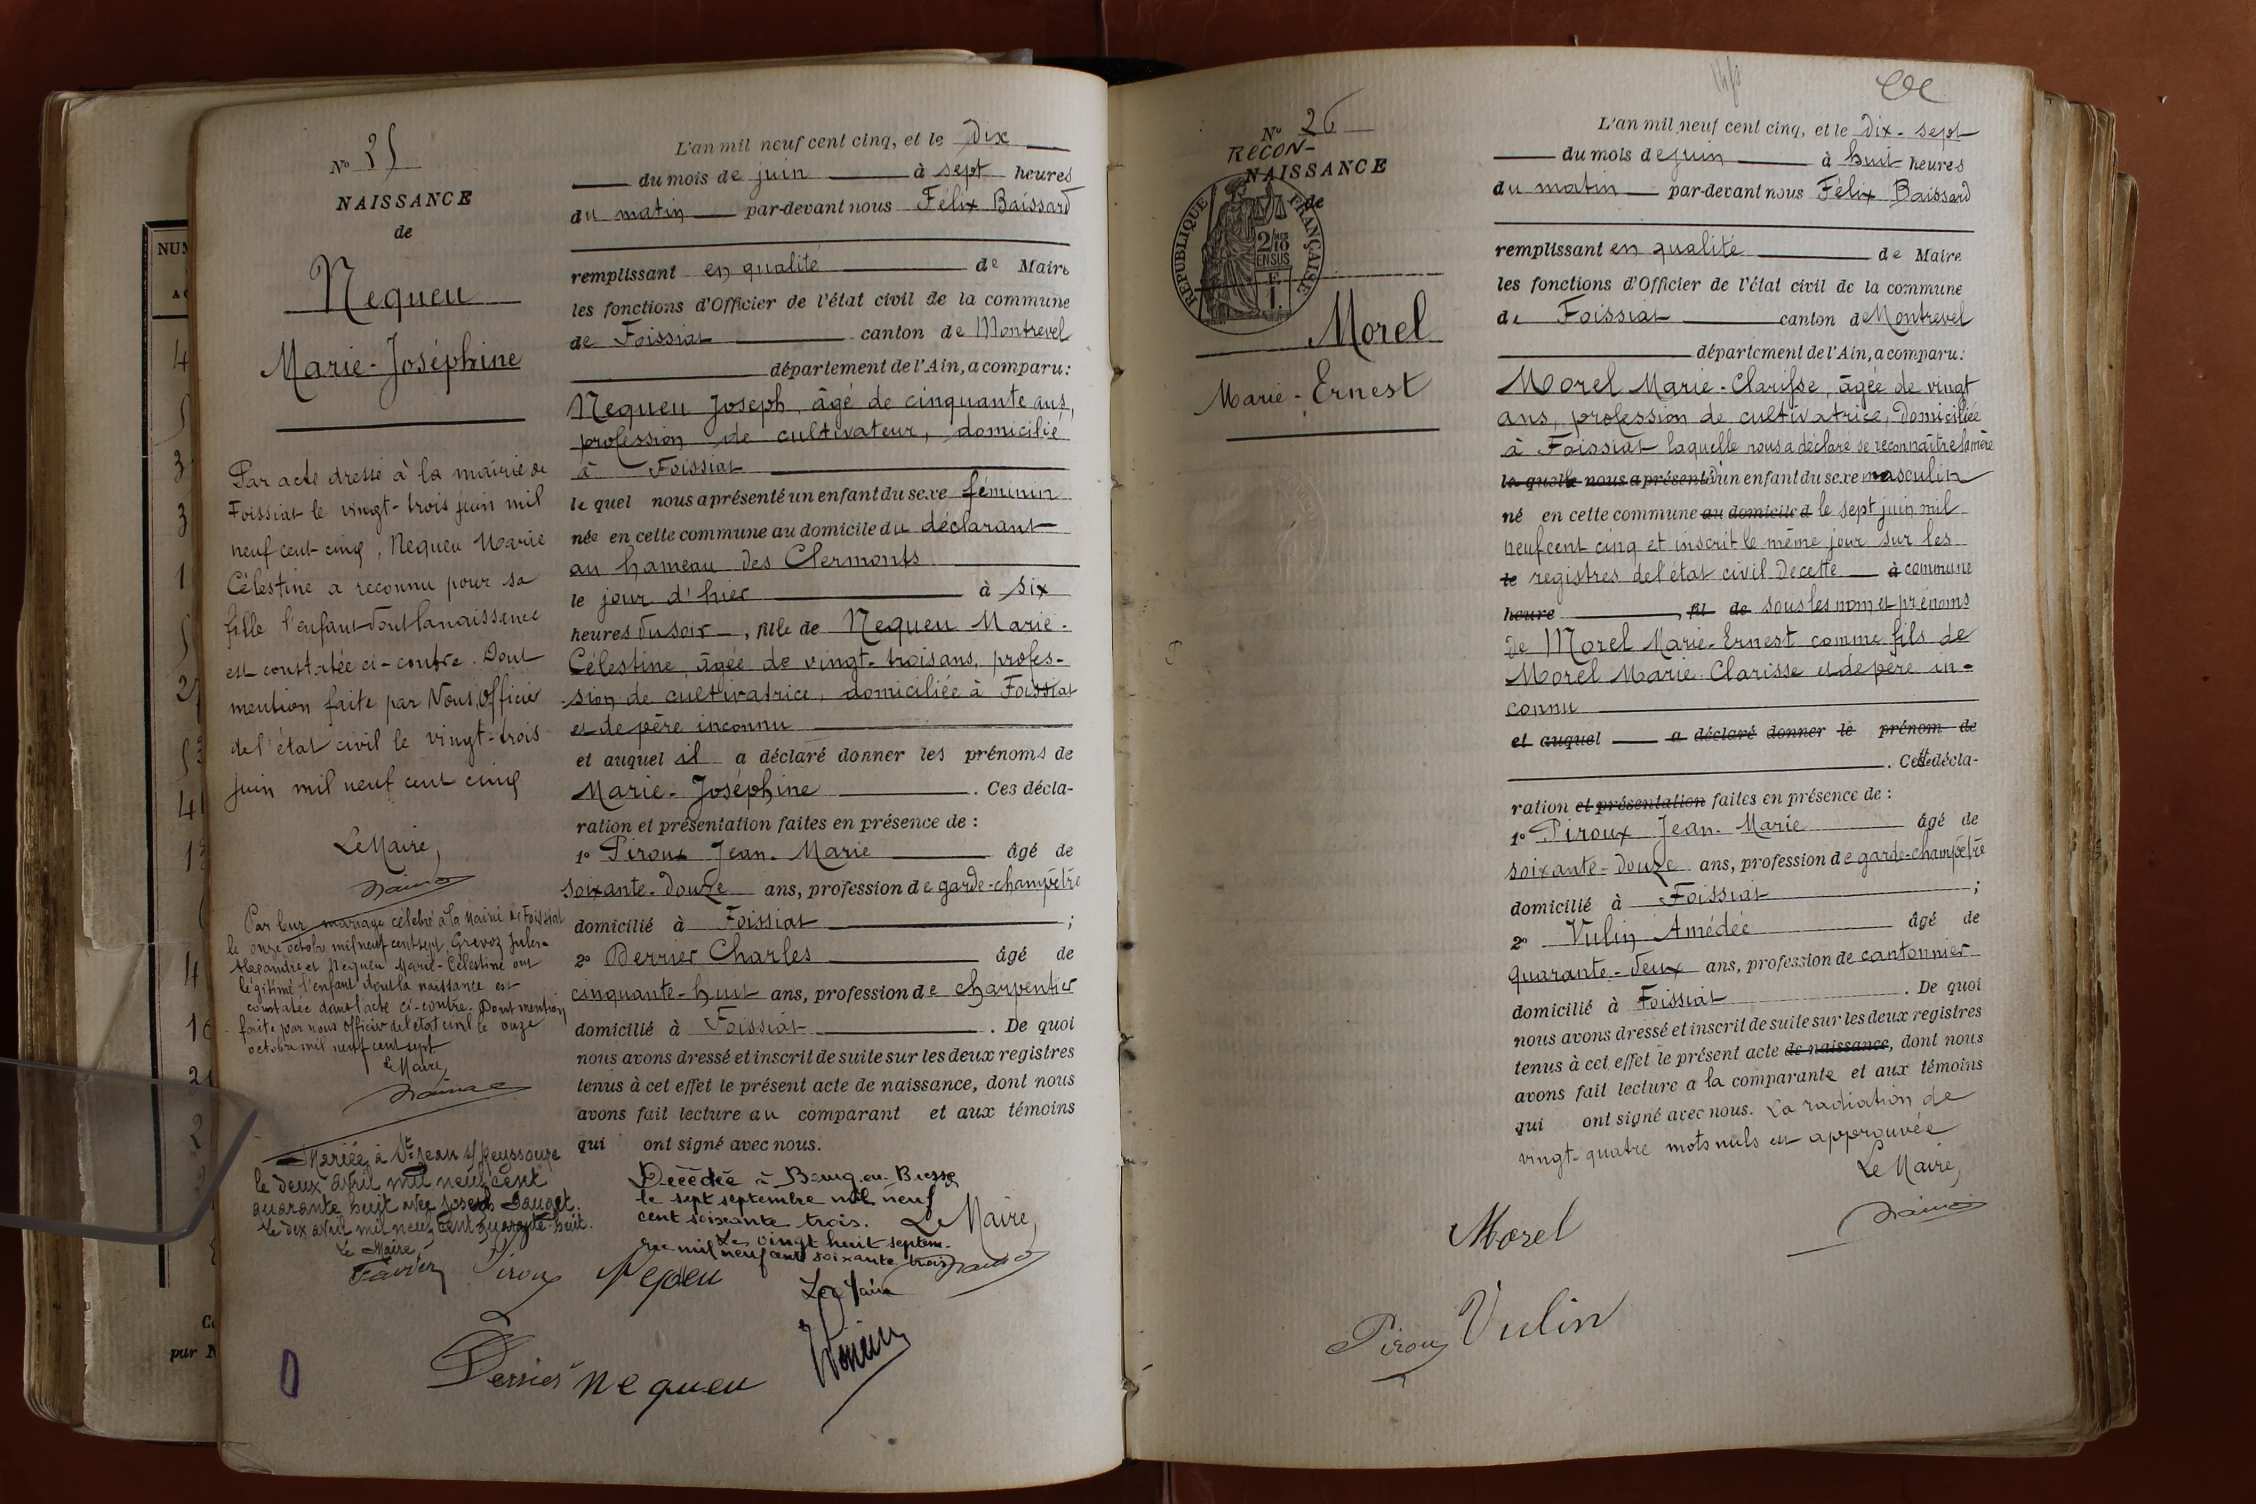 N° 25
NAISSANCE
de
Nequeu
Marie-Joséphine
Par acte dressé à la mairie de
Foissiat le vingt-trois juin mil
neuf cent cinq, Nequeu Marie
Célestine a reconnu pour sa
fille l'enfant dont la naissance
est constatée ci-contre. Dont
mention faite par Nous, Officier
de l'état civil le vingt-trois
juin mil neuf cent cinq
Le Maire,
Par leur mariage célébré à la Mairie de Foissiat
le onze octobre mil neuf cent sept, Grévoz Jules-
Alexandre et Nequeu Marie-Célestine ont
légitimé l'enfant dont la naissance est
constatée dans l'acte ci-contre. Dont mention
faite par nous Officier de l'état civil le onze
octobre mil neuf cent sept
Le Maire,
Mariée à St Jean s/ Reyssouze
le deux avril mil neuf cent
quarante huit avec Joseph
Le dix avril mil neuf cent quarante-huit.
Le Maire
L'an mil neuf cent cinq, et le dix
du mois de juin à sept heures
du matin par-devant nous Félix Baissard
remplissant en qualité de Maire
les fonctions d'Officier de l'état civil de la commune
de Foissiat canton de Montrevel
département de l'Ain, a comparu:
Nequeu Joseph, âgé de cinquante ans,
profession de cultivateur, domicilié
à Foissiat
lequel nous a présenté un enfant du sexe féminin
née en cette commune au domicile du déclarant
au hameau des Clermonts
le jour d'hier à six
heures du soir, fille de Nequeu Marie-
Célestine, âgée de vingt-trois ans, profes-
sion de cultivatrice, domiciliée à Foissiat
et de père inconnu
et auquel il a déclaré donner les prénoms de
Marie-Joséphine. Ces décla-
ration et présentation faites en présence de :
1° Piroux Jean-Marie âgé de
soixante-douze ans, profession de garde-champêtre
domicilié à Foissiat ;
2° Perrier Charles âgé de
cinquante-huit ans, profession de charpentier
domicilié à Foissiat. De quoi
nous avons dressé et inscrit de suite sur les deux registres
tenus à cet effet le présent acte de naissance, dont nous
avons fait lecture au comparant et aux témoins
qui ont signé avec nous.
Décédée à Bourg-en-Bresse
le sept septembre mil neuf
cent soixante trois.
Le vingt huit septem-
bre mil neuf cent soixante trois
Le Maire
Le Maire,
Piroux Nequeu
Perrier Nequeu
N° 26
RECON-
NAISSANCE
de
RÉPUBLIQUE FRANÇAISE
2/10
EN SUS
Morel
Marie-Ernest
L'an mil neuf cent cinq, et le dix-sept
du mois de juin à huit heures
du matin par-devant nous Félix Baissard
remplissant en qualité de Maire
les fonctions d'Officier de l'état civil de la commune
de Foissiat canton de Montrevel
département de l'Ain, a comparu:
Morel Marie-Clarisse, âgée de vingt
ans, profession de cultivatrice, domiciliée
à Foissiat laquelle nous a déclaré se reconnaître la mère
laquelle nous a présenté d'un enfant du sexe masculin
né en cette commune au domicile d le sept juin mil
neuf cent cinq et inscrit le même jour sur les
le registres de l'état civil de cette à commune
heure, fil de sous les nom et prénoms
de Morel Marie-Ernest comme fils de
Morel Marie-Clarisse et de père in-
connu
et auquel a déclaré donner le prénom de
. Cette décla-
ration et présentation faites en présence de :
1° Piroux Jean-Marie âgé de
soixante-douze ans, profession de garde-champêtre
domicilié à Foissiat ;
2° Vulin Amédée âgé de
quarante-deux ans, profession de cantonnier
domicilié à Foissiat. De quoi
nous avons dressé et inscrit de suite sur les deux registres
tenus à cet effet le présent acte de naissance, dont nous
avons fait lecture à la comparante et aux témoins
qui ont signé avec nous. La radiation de
vingt-quatre mots nuls est approuvée
Le Maire,
Morel
Piroux Vulin